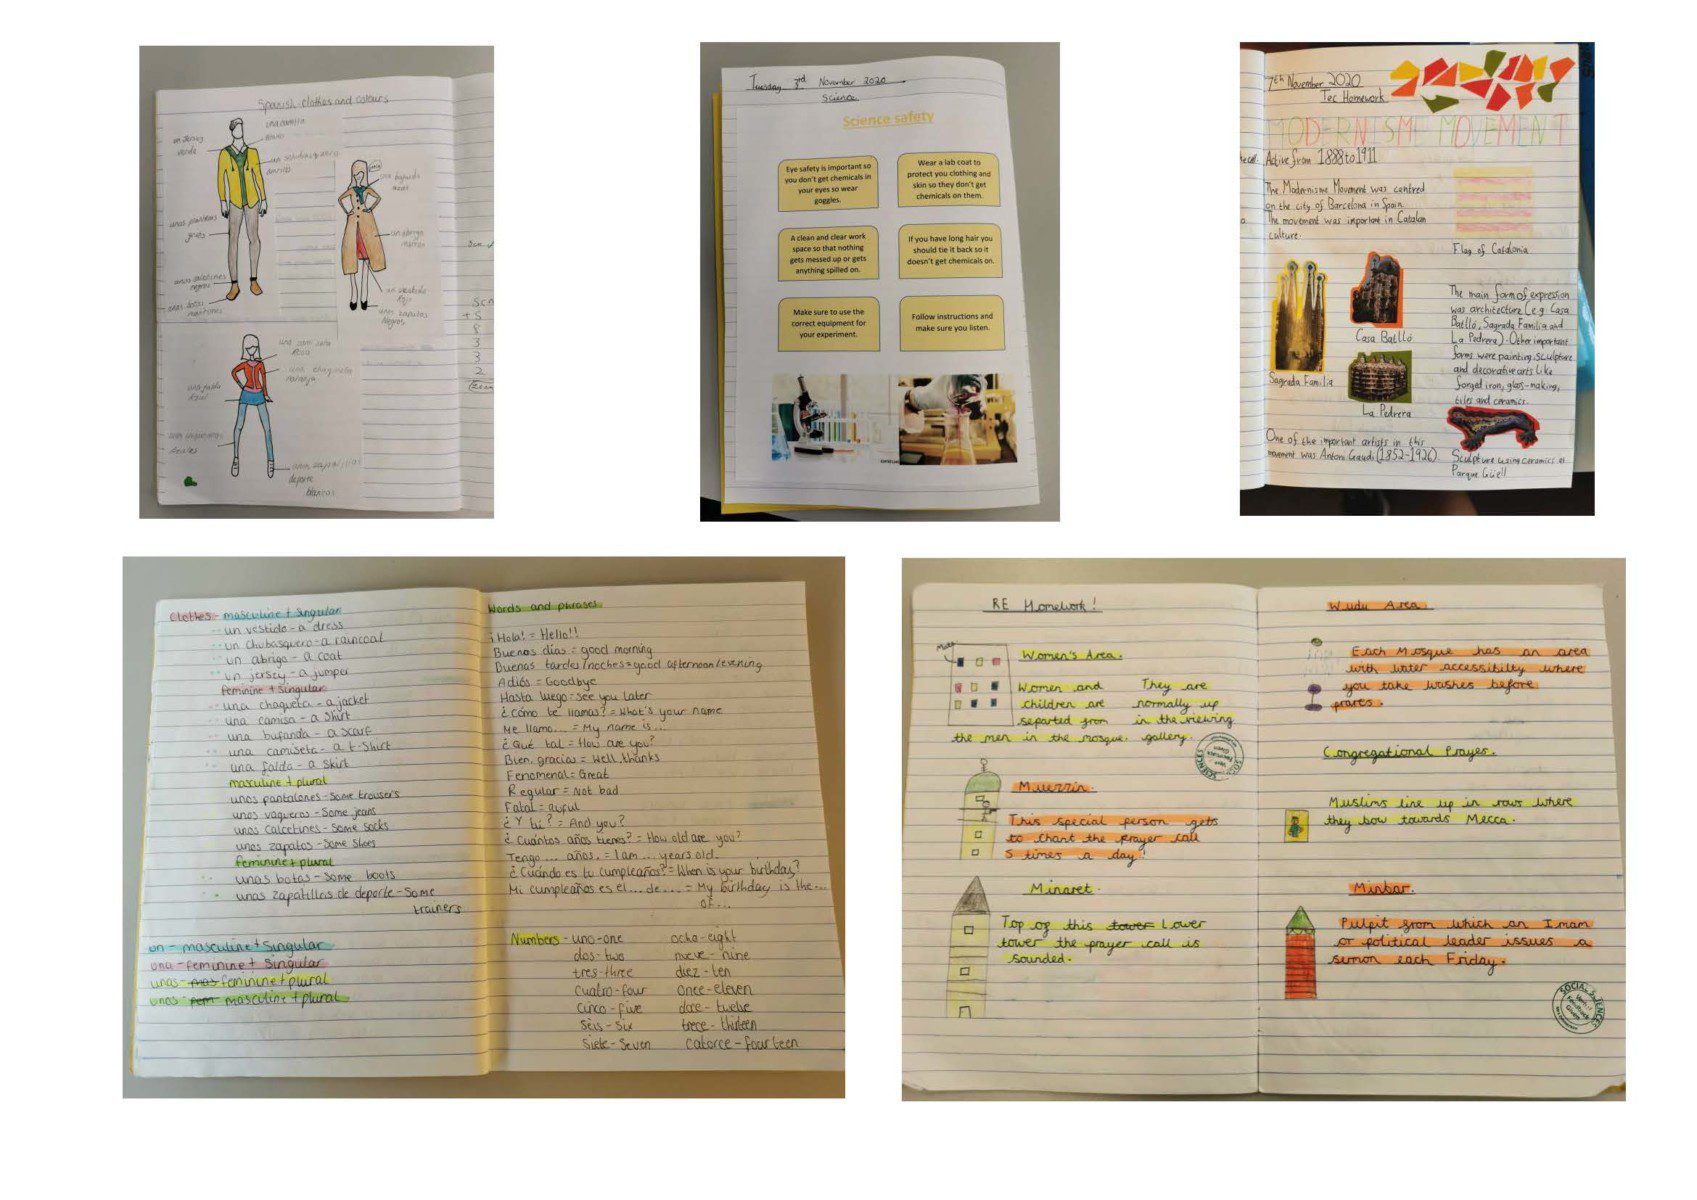 Spanish clothes and colours
una camisa
un jersey
verde
un chubasquero
amarillo
unos pantalones
grises
unos calcetines
negros
unas botas
marrones
una bufanda
azul
un abrigo
marron
un vestido
rojo
unos zapatos
Negros
una camiseta
Rosa
una chaqueta
naranja
una falda
azul
unos vaqueros
Azules
unas zapatillas
deporte
blancos
Tuesday 3rd November 2020
Science
Science safety
Eye safety is important so
you don't get chemicals in
your eyes so wear
goggles.
Wear a lab coat to
protect you clothing and
skin so they don't get
chemicals on them.
A clean and clear work
space so that nothing
gets messed up or gets
anything spilled on.
If you have long hair you
should tie it back so it
doesn't get chemicals on.
Make sure to use the
correct equipment for
your experiment.
Follow instructions and
make sure you listen.
7th November 2020
Tec Homework
MODERNISME MOVEMENT
Active from 1888 to 1911
The Modernisme Movement was centred
on the city of Barcelona in Spain.
The movement was important in Catalan
culture.
Flag of Catalonia
Casa Batlló
Sagrada Familia
La Pedrera
The main form of expression
was architecture (e.g Casa
Batlló, Sagrada Familia and
La Pedrera). Other important
forms were painting, sculpture
and decorative arts like
forged iron, glass-making,
tiles and ceramics.
One of the important artists in this
movement was Antoni Gaudi (1852-1926)
Sculpture using ceramics at
Parque Güell
Clothes - masculine + singular
un vestido - a dress
un chubasquero - a raincoat
un abrigo - a coat
un jersey - a jumper
feminine + singular
una chaqueta - a jacket
una camisa - a shirt
una bufanda - a scarf
una camiseta - a t-shirt
una falda - a skirt
masculine + plural
unos pantalones - some trousers
unos vaqueros - some jeans
unos calcetines - some socks
unos zapatos - some shoes
feminine + plural
unas botas - some boots
unas zapatillas de deporte - some
trainers
un - masculine + singular
una - feminine + singular
unas - mas feminine + plural
unos - fem masculine + plural
Words and phrases
¡Hola! = Hello!!
Buenos días = good morning
Buenas tardes/noches = good afternoon/evening
Adiós = Goodbye
Hasta luego = see you later
¿Cómo te llamas? = What's your name
Me llamo... = My name is...
¿Qué tal = How are you?
Bien, gracias = Well, thanks
Fenomenal = Great
Regular = Not bad
Fatal = awful
¿Y tú? = And you?
¿Cuántos años tienes? = How old are you?
Tengo ... años. = I am ... years old.
¿Cuándo es tu cumpleaños? = When is your birthday?
Mi cumpleaños es el... de... = My birthday is the...
of...
Numbers - uno - one ocho - eight
dos - two nueve - nine
tres - three diez - ten
cuatro - four once - eleven
cinco - five doce - twelve
seis - six trece - thirteen
siete - seven catorce - fourteen
RE Homework!
Women's Area.
Women and They are
children are normally up
seperted from in the viewing
the men in the mosque. gallery.
Muezzin.
This special person gets
to chant the prayer call
5 times a day!
Minaret.
Top of this tower Lower
tower the prayer call is
sounded.
Wudu Area.
Each Mosque has an area
with water accessibilty where
you take washes before
prares.
Congregational Prayer.
Muslims line up in rows where
they bow towards Mecca.
Minbar.
Pulpit from which an Imam
or political leader issues a
sermon each Friday.
SOCIAL SCIENCES
Verbal
Feedback
Given